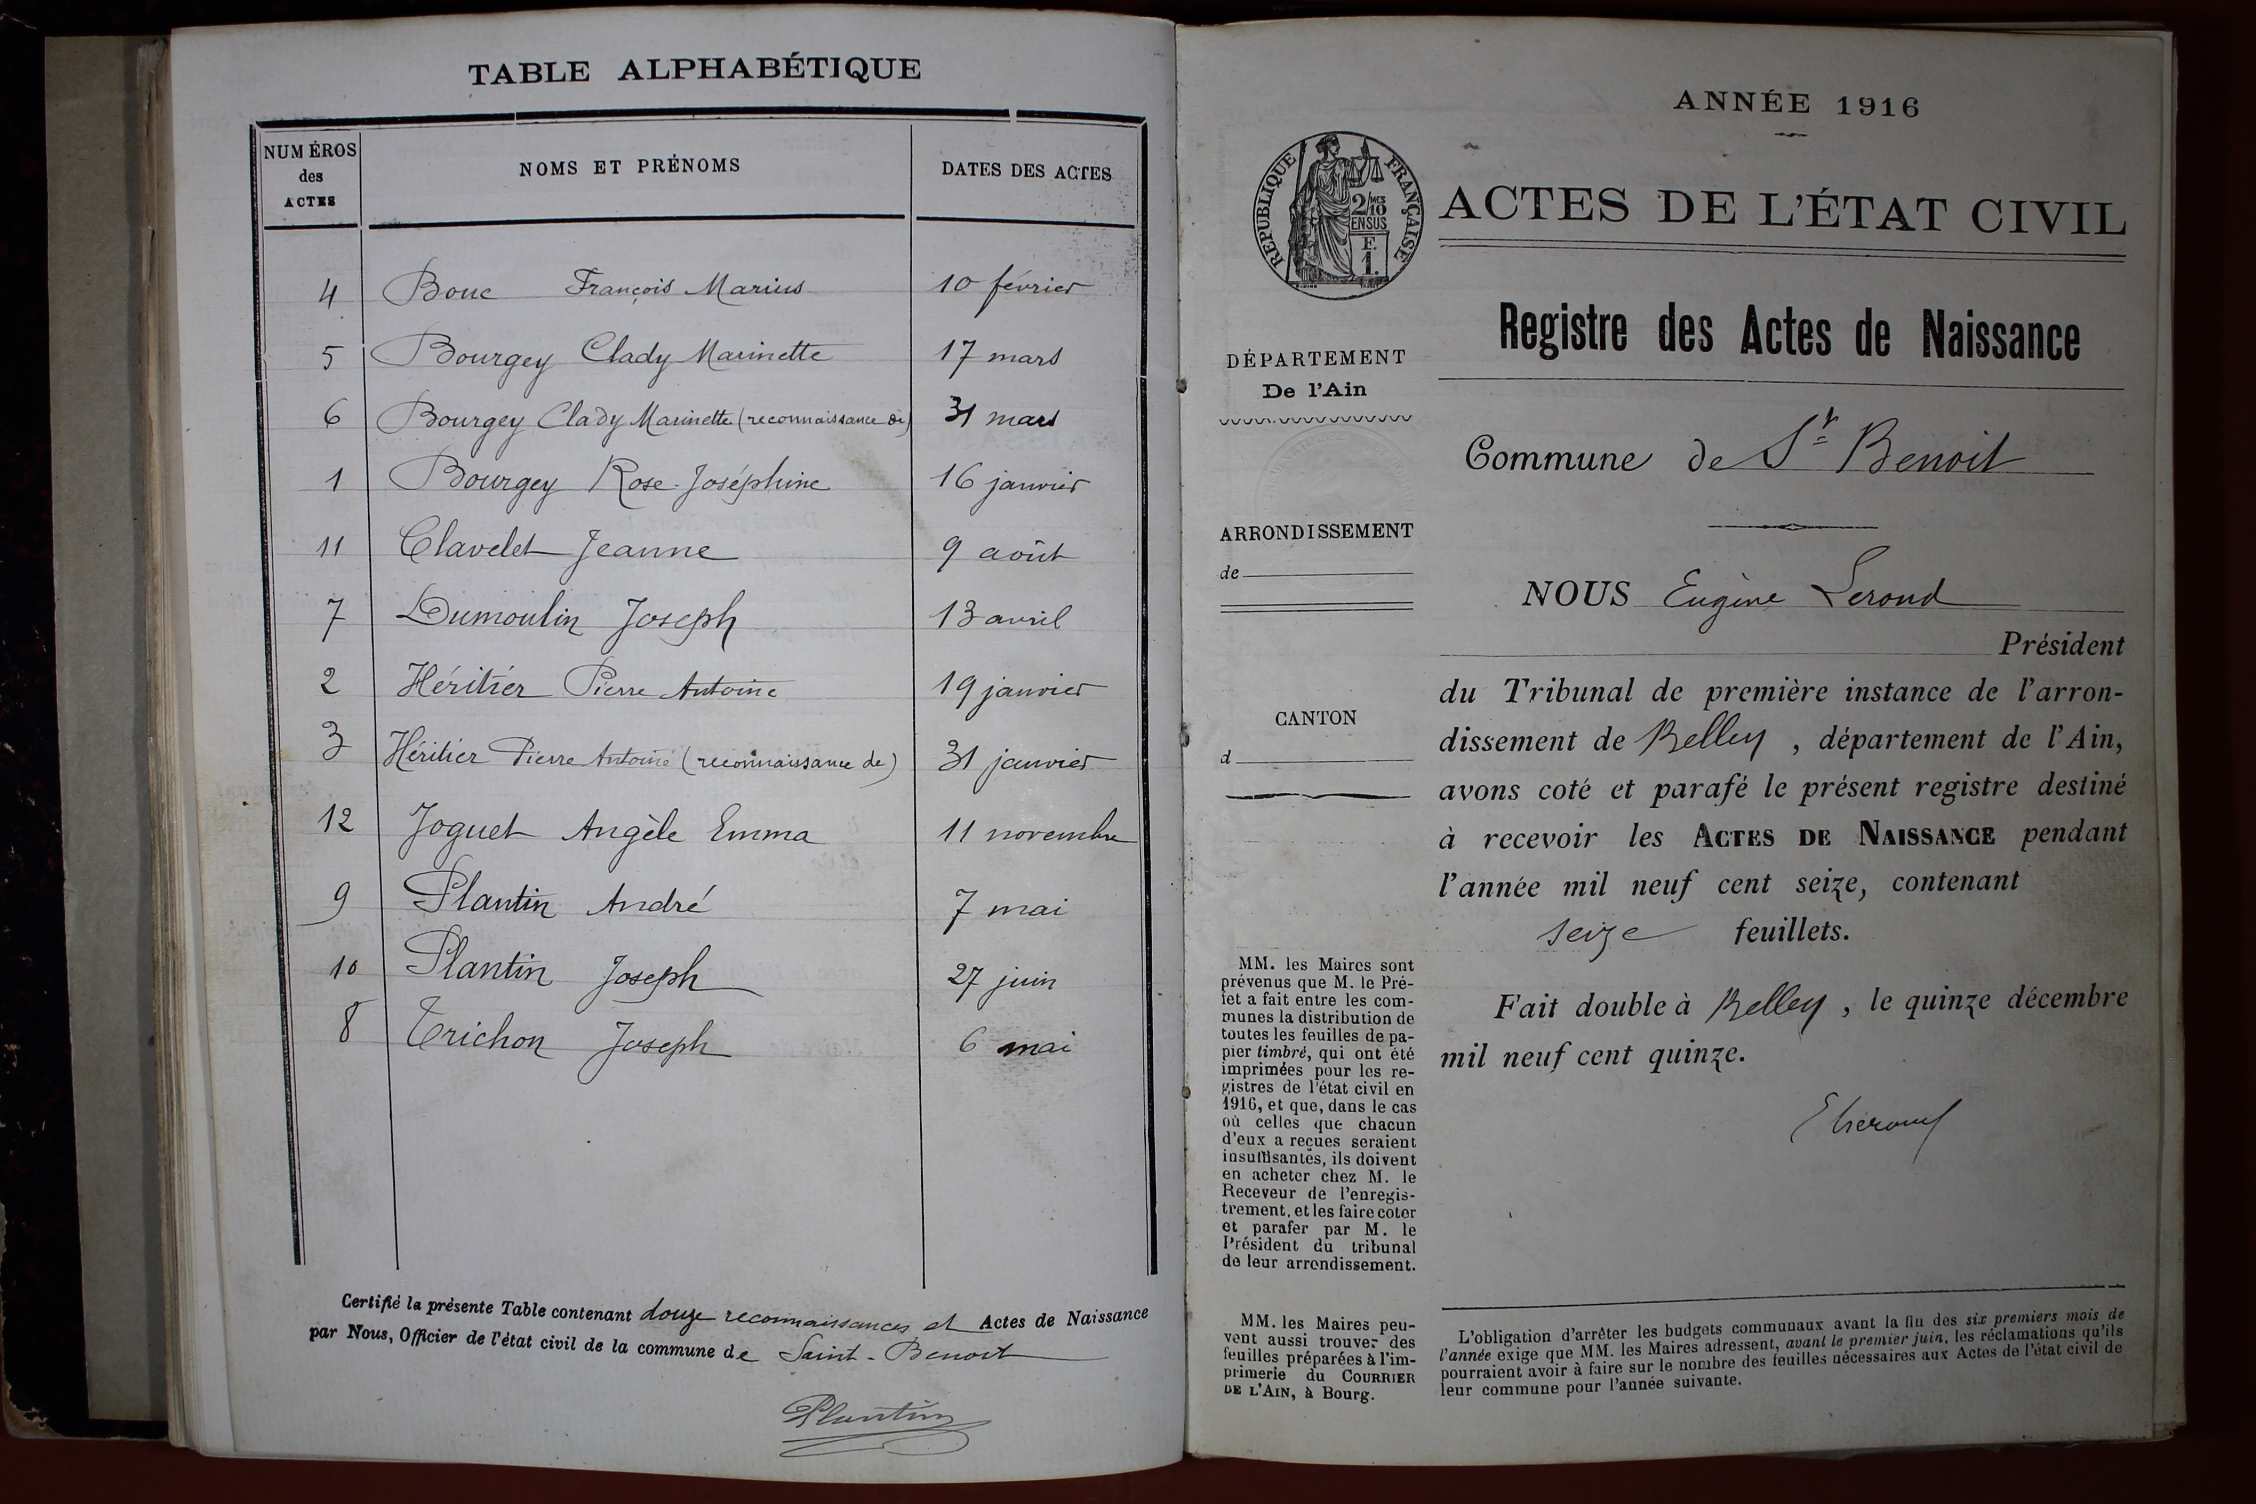 TABLE ALPHABÉTIQUE
NUMÉROS des ACTES NOMS ET PRÉNOMS DATES DES ACTES
4 Bouc François Marius 10 février
5 Bourgey Clady Marinette 17 mars
6 Bourgey Clady Marinette (reconnaissance de) 31 mars
1 Bourgey Rose Joséphine 16 janvier
11 Clavelet Jeanne 9 août
7 Dumoulin Joseph 13 avril
2 Héritier Pierre Antoine 19 janvier
3 Héritier Pierre Antoine (reconnaissance de) 31 janvier
12 Joguet Angèle Emma 11 novembre
9 Plantin André 7 mai
10 Plantin Joseph 27 juin
8 Trichon Joseph 6 mai
Certifié la présente Table contenant douze reconnaissances et Actes de Naissance
par Nous, Officier de l'état civil de la commune de Saint-Benoit
Plantin
ANNÉE 1916
RÉPUBLIQUE FRANÇAISE
2/10 MES
EN SUS
F.
1.
ACTES DE L'ÉTAT CIVIL
Registre des Actes de Naissance
DÉPARTEMENT
De l'Ain
Commune de St Benoit
ARRONDISSEMENT
de
NOUS Eugène Lerond
Président
du Tribunal de première instance de l'arron-
CANTON
d
dissement de Belley, département de l'Ain,
avons coté et parafé le présent registre destiné
à recevoir les ACTES DE NAISSANCE pendant
l'année mil neuf cent seize, contenant
seize feuillets.
Fait double à Belley, le quinze décembre
mil neuf cent quinze.
MM. les Maires sont
prévenus que M. le Pré-
fet a fait entre les com-
munes la distribution de
toutes les feuilles de pa-
pier timbré, qui ont été
imprimées pour les re-
gistres de l'état civil en
1916, et que, dans le cas
où celles que chacun
d'eux a reçues seraient
insuffisantes, ils doivent
en acheter chez M. le
Receveur de l'enregis-
trement, et les faire coter
et parafer par M. le
Président du tribunal
de leur arrondissement.
MM. les Maires peu-
vent aussi trouver des
feuilles préparées à l'im-
primerie du COURRIER
DE L'AIN, à Bourg.
L'obligation d'arrêter les budgets communaux avant la fin des six premiers mois de
l'année exige que MM. les Maires adressent, avant le premier juin, les réclamations qu'ils
pourraient avoir à faire sur le nombre des feuilles nécessaires aux Actes de l'état civil de
leur commune pour l'année suivante.